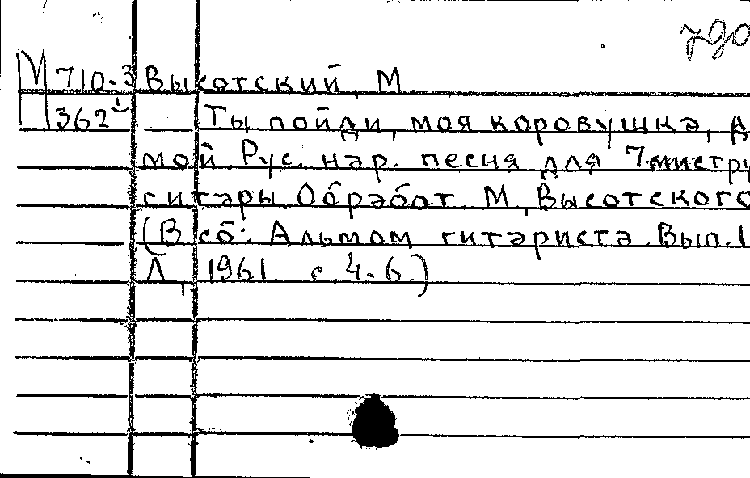 790
М 710-3 Высотский, М
362¹ Ты пойди, моя коровушка, д
мой. Рус. нар. песня для 7-мистру
гитары. Обработ. М. Высотского
(В сб: Альмом гитариста. Вып. 1
Л, 1961 с. 4-6)